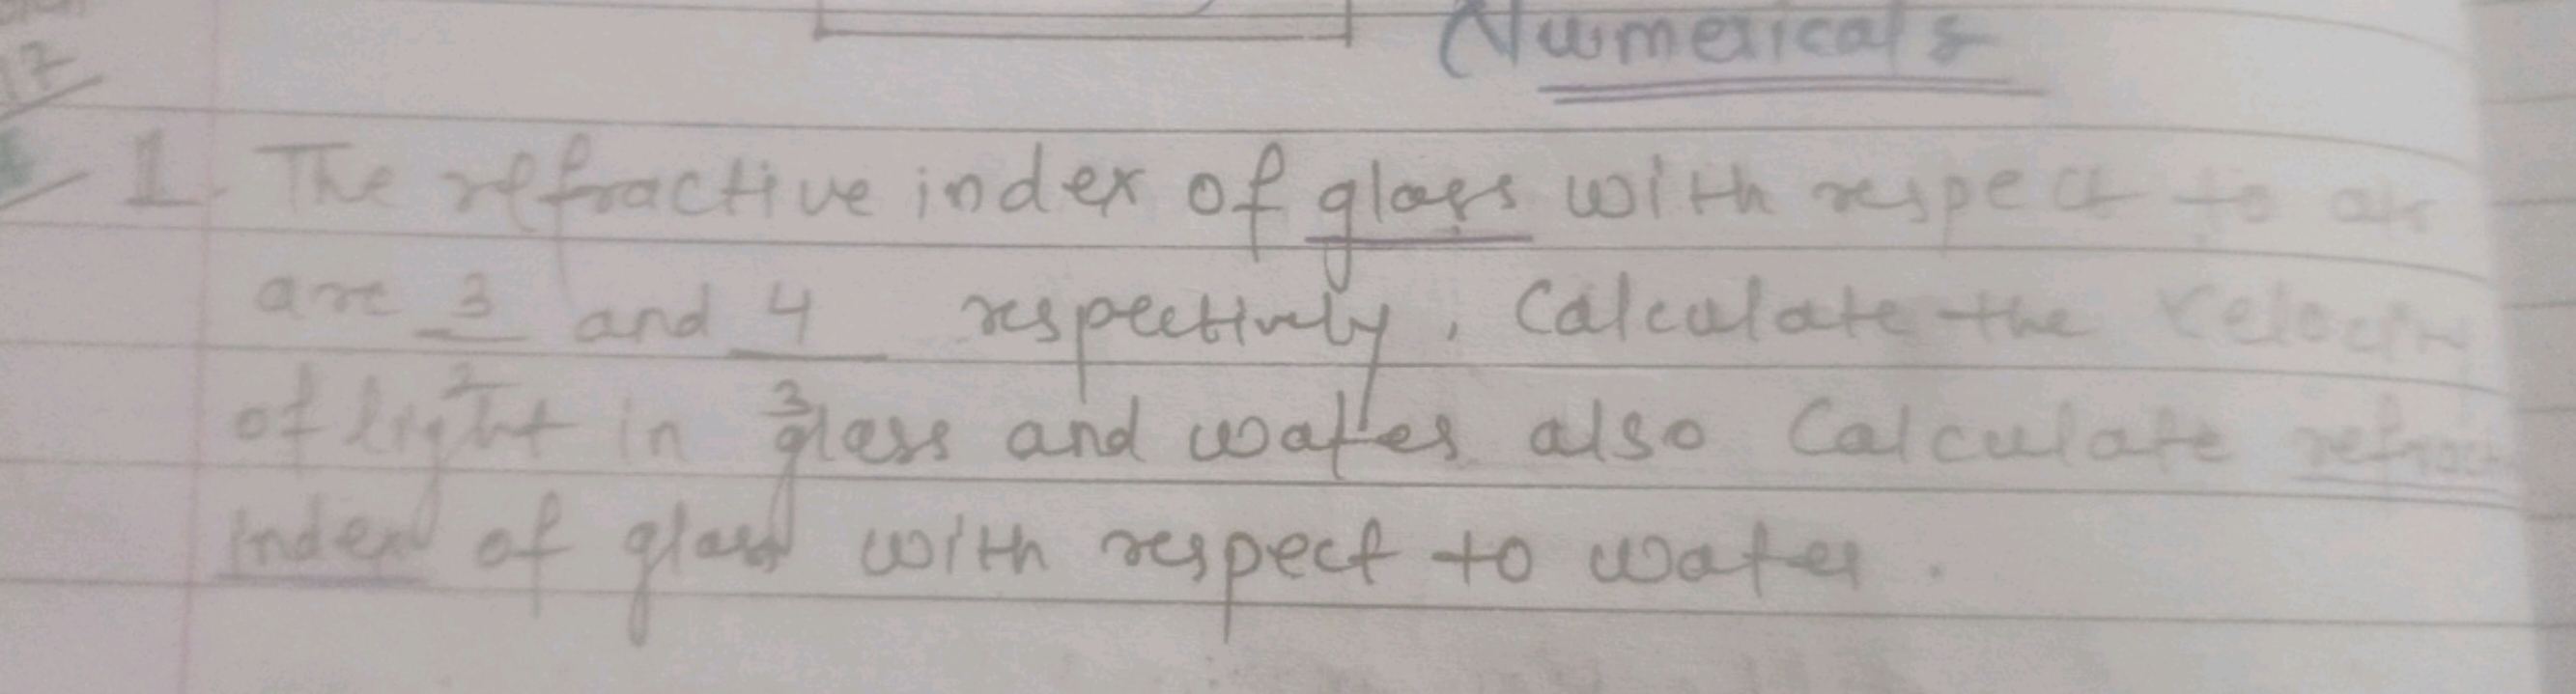 17
Numericals
1. The refractive index of glass with respect to air
are 3/2 and 4/3 respectively. Calculate the velocity
of light in glass and water also Calculate refract
index of glass with respect to water.